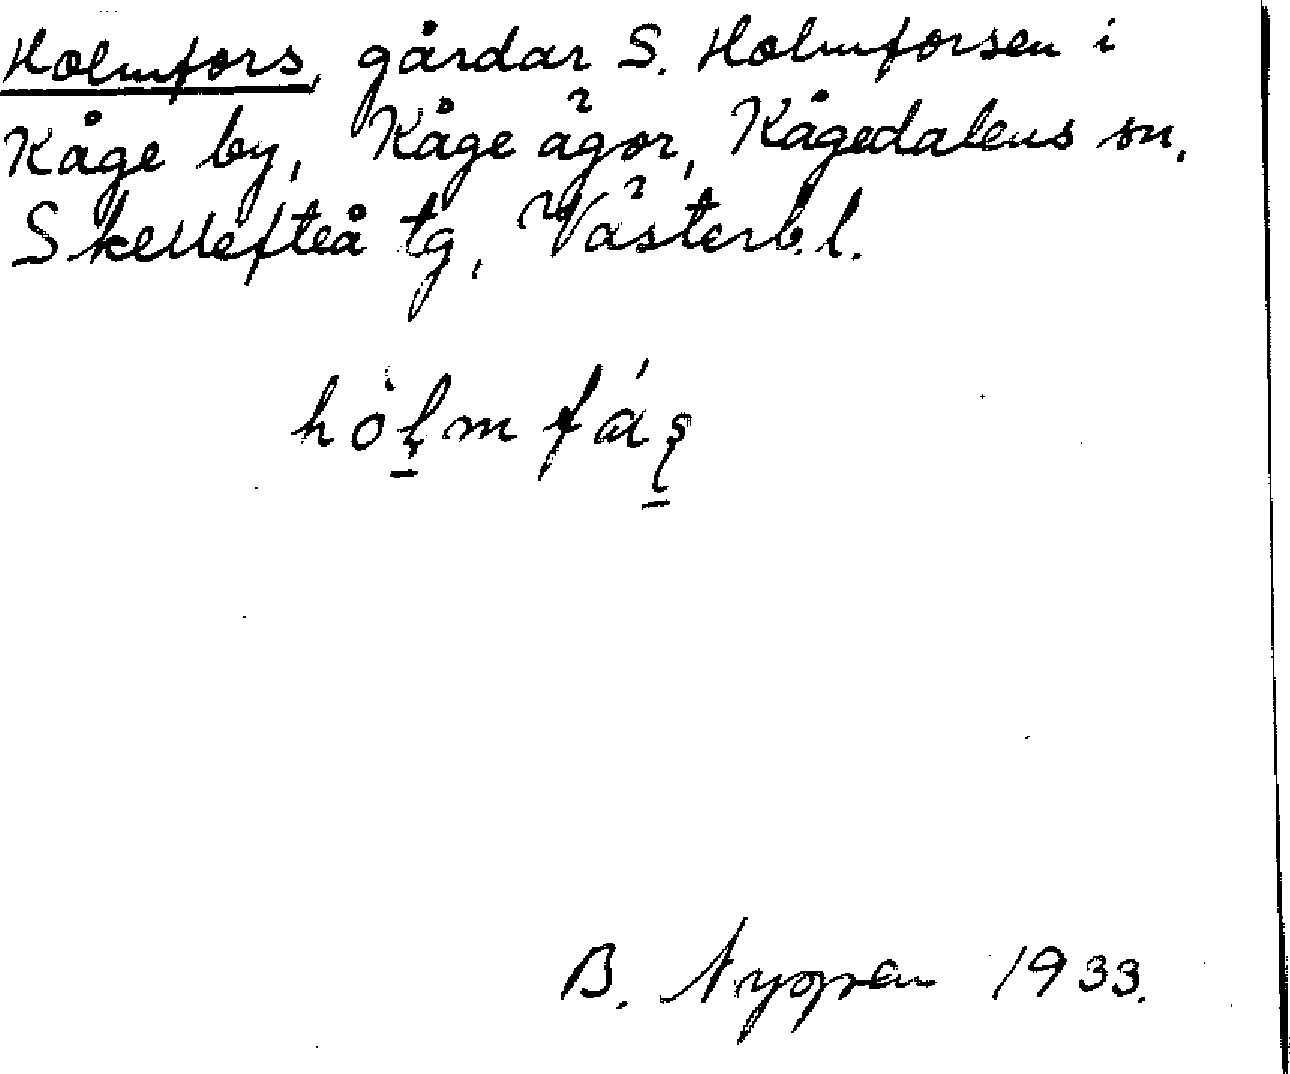 Holmfors, gårdar S. Holmforsen i
Kåge by, Kåge ägor, Kågedalens sn,
Skellefteå tg, Västerb.l.
B. Nygren 1933.